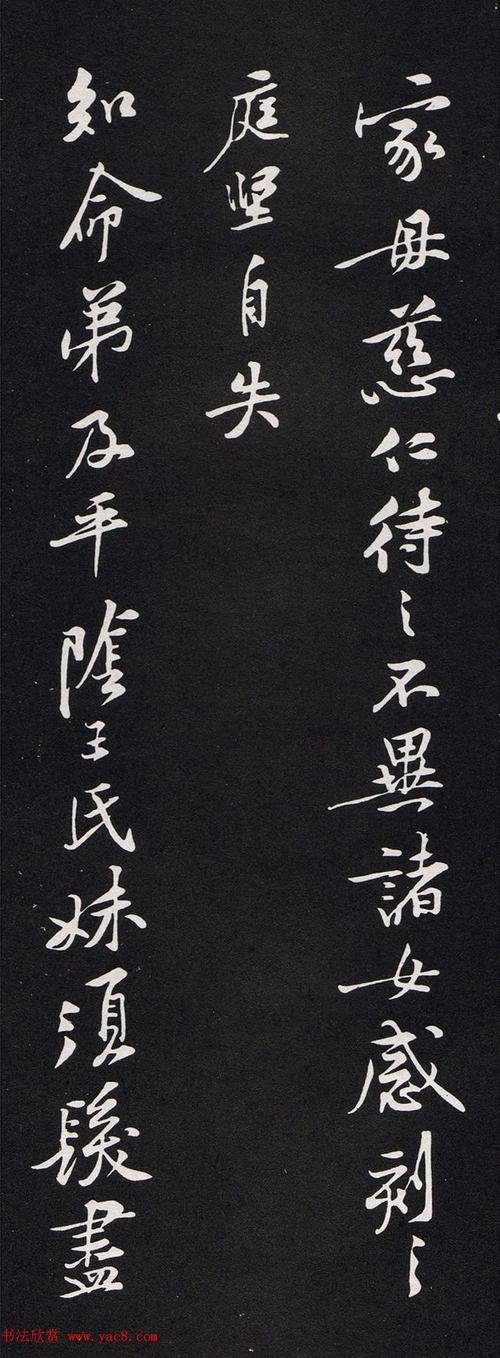 家母慈仁待之不異諸女感刻〻
庭坚自失
知命弟及平陰王氏妹須髮盡
书法欣赏 www.yac8.com